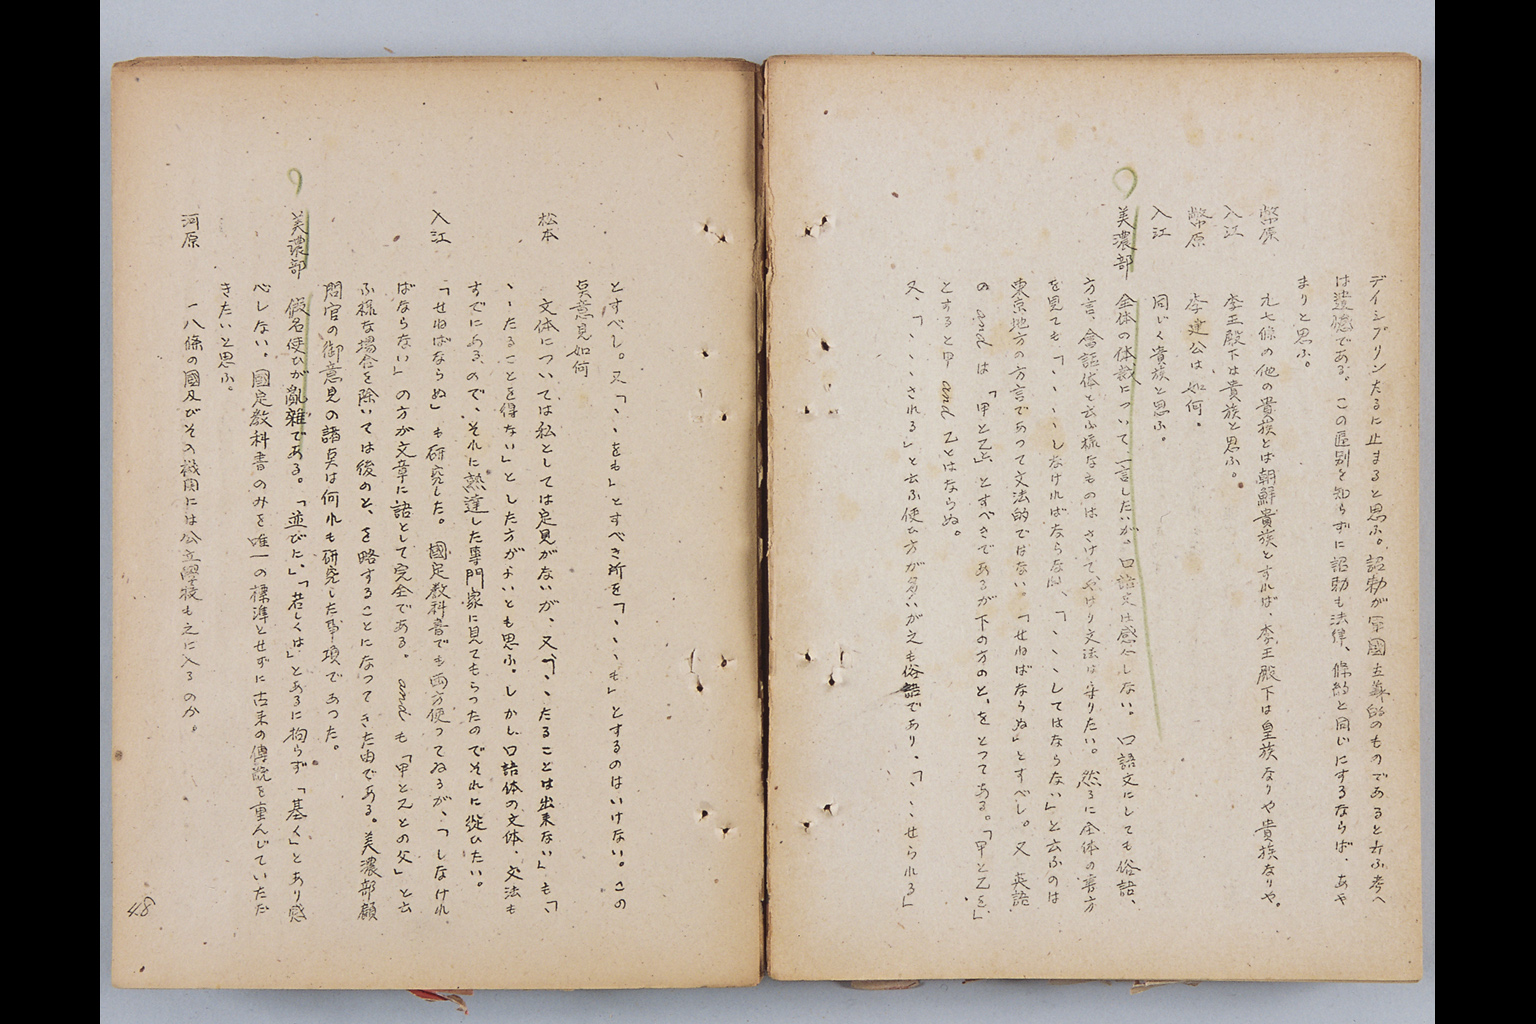 デイシプリンたるに止まると思ふ。詔勅が軍國主義的のものであると云ふ考へ
は遺憾である。この區別を知らずに詔勅も法律、條約と同じにするならば、あや
まりと思ふ。
幣原 九七條の他の貴族とは朝鮮貴族とすれば、李王殿下は皇族なりや貴族なりや。
入江 李王殿下は貴族と思ふ。
幣原 李建公は如何。
入江 同じく貴族と思ふ。
美濃部 全体の体裁について一言したいが。口語文は感心しない。口語文にしても俗語、
方言、會話体と云ふ樣なものはさけてやはり文法は守りたい。然るに全体の書方
を見ても「、、、しなければならない、「、、、してはならない」と云ふのは
東京地方の方言であつて文法的ではない。「せねばならぬ」とすべし。又 英語
の and は「甲と乙と」とすべきであるが下の方のと、をとつてある。「甲と乙を」
とすると甲 and 乙とはならぬ。
又、「、、、される」と云ふ使ひ方が多いが之も俗語であり、「、、せられる」
とすべし。又「、、をも」とすべき所を「、、、も」とするのはいけない。この
点意見如何
松本 文体については私としては定見がないが、又「、、たることは出来ない」も「、
、、たることを得ない」とした方がよいとも思ふ。しかし口語体の文体、文法も
すでにあるので、それに熟達した専門家に見てもらつたのでそれに從ひたい。
入江 「せねばならぬ」も研究した。國定教科書でも両方使つてゐるが、「しなけれ
ばならない」の方が文章に語として完全である。and も「甲と乙との父」と云
ふ樣な場合を除いては後のと、を略することになつてきた由である。美濃部顧
問官の御意見の諸点は何れも研究した事項であつた。
美濃部 假名使ひが亂雜である。「並びに」、「若しくは」とあるに拘らず「基く」とあり感
心しない。國定教科書のみを唯一の標準とせずに古来の傳統を重んじていただ
きたいと思ふ。
河原 一八條の國及びその機関には公立學校も之に入るのか。
48